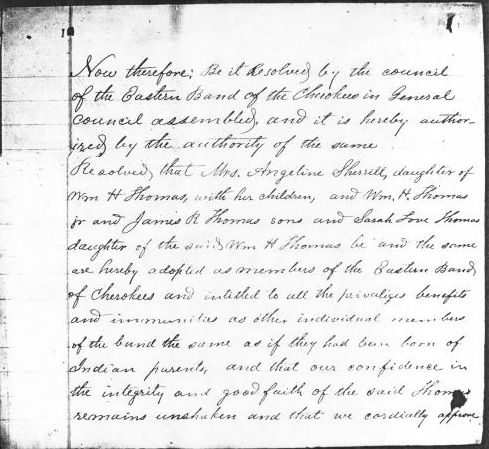 Now therefore; Be it Resolved, by the council
of the Eastern Band of the Cherokees in General
Council assembled, and it is hereby author-
ized by the authority of the same
Resolved, that Mrs. Angeline Sherrill, daughter of
Wm H Thomas, with her children, and Wm, H. Thomas
jr and James R Thomas sons and Sarah Love Thomas
daughter of the said Wm H Thomas be and the same
are hereby adopted as members of the Eastern Band,
of Cherokees and intitled to all the privaliges benefits
and immunities as other individual members
of the band the same as if they had been born of
Indian parents, and that our confidence in
the integrity and good faith of the said Thomas
remains unshaken and that we cordially approve